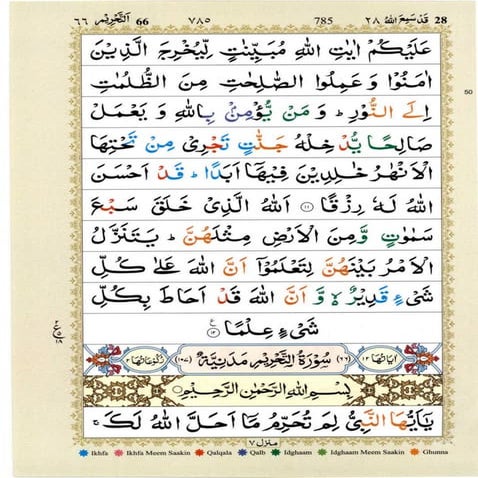 التحريم ٦٦ 66 ٧٨٥ 785 قد سمع الله ٢٨ 28
عَلَيْكُمْ اٰيٰتِ اللّٰهِ مُبَيِّنٰتٍ لِّيُخْرِجَ الَّذِيْنَ
اٰمَنُوْا وَ عَمِلُوا الصّٰلِحٰتِ مِنَ الظُّلُمٰتِ
اِلَى النُّوْرِ ؕ وَ مَنْ يُّؤْمِنْۢ بِاللّٰهِ وَ يَعْمَلْ
صَالِحًا يُّدْخِلْهُ جَنّٰتٍ تَجْرِيْ مِنْ تَحْتِهَا
الْاَنْهٰرُ خٰلِدِيْنَ فِيْهَاۤ اَبَدًا ؕ قَدْ اَحْسَنَ
اللّٰهُ لَهٗ رِزْقًا ۝۱۱ اَللّٰهُ الَّذِيْ خَلَقَ سَبْعَ
سَمٰوٰتٍ وَّ مِنَ الْاَرْضِ مِثْلَهُنَّ ؕ يَتَنَزَّلُ
الْاَمْرُ بَيْنَهُنَّ لِتَعْلَمُوْۤا اَنَّ اللّٰهَ عَلٰى كُلِّ
شَيْءٍ قَدِيْرٌ ۙ۬ وَّ اَنَّ اللّٰهَ قَدْ اَحَاطَ بِكُلِّ
شَيْءٍ عِلْمًا ۝۱۲
اٰيَاتُهَا ١٢ (٦٦) سُوْرَةُ التَّحْرِيْمِ مَدَنِيَّةٌ (١٠٧) رُكُوْعَاتُهَا ٢
بِسْمِ اللّٰهِ الرَّحْمٰنِ الرَّحِيْمِ
يٰۤاَيُّهَا النَّبِيُّ لِمَ تُحَرِّمُ مَاۤ اَحَلَّ اللّٰهُ لَكَ ۚ
منزل ٧
Ikhfa Ikhfa Meem Saakin Qalqala Qalb Idghaam Idghaam Meem Saakin Ghunna
50